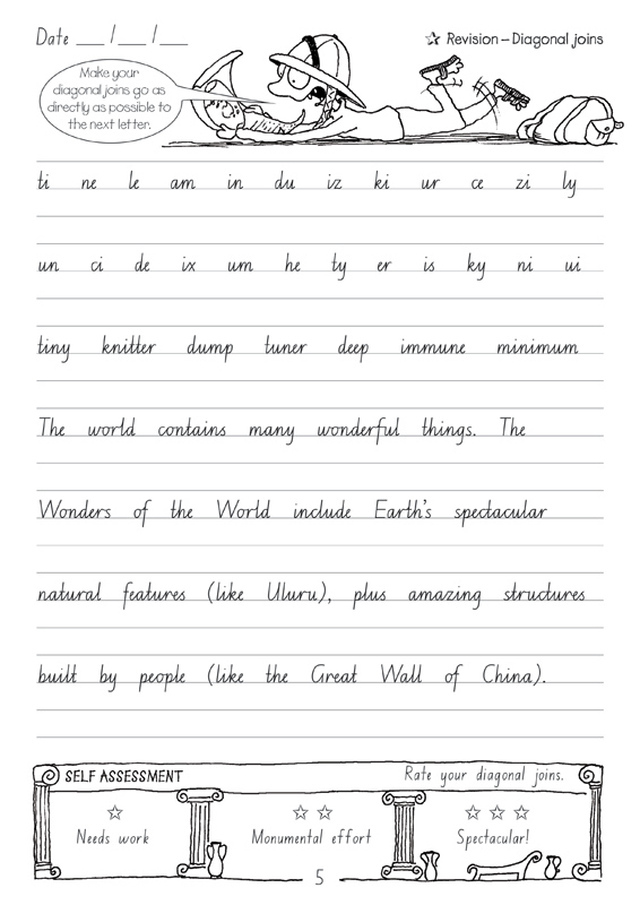 Date ___ /___ /___
☆ Revision – Diagonal joins
Make your
diagonal joins go as
directly as possible to
the next letter.
ti ne le am in du iz ki ur ce zi ly
un ci de ix um he ty er is ky ni ui
tiny knitter dump tuner deep immune minimum
The world contains many wonderful things. The
Wonders of the World include Earth's spectacular
natural features (like Uluru), plus amazing structures
built by people (like the Great Wall of China).
SELF ASSESSMENT
Rate your diagonal joins.
☆ ☆ ☆ ☆ ☆ ☆
Needs work Monumental effort Spectacular!
5